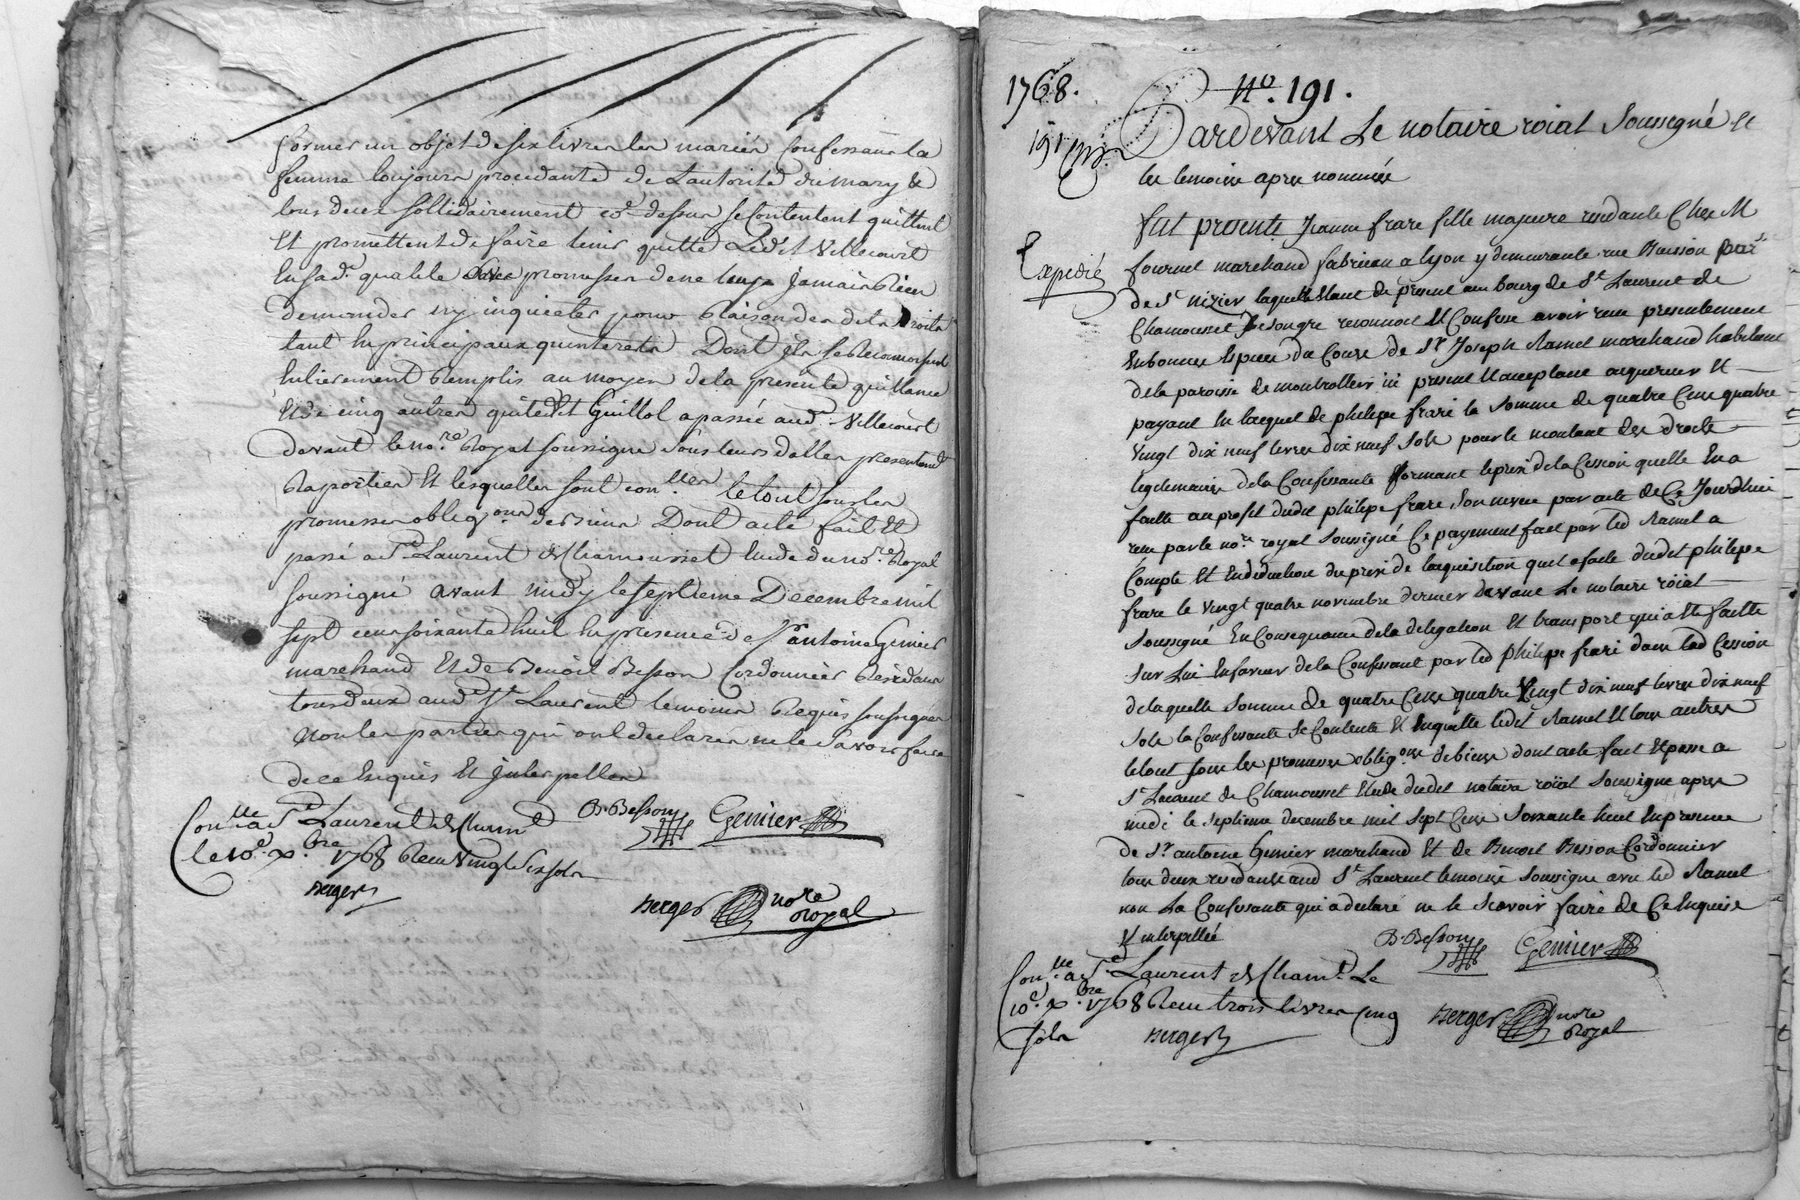 former un objet de six livres les mariés confessants la
femme toujours procedante de l'autorité du mary &
tous deux sollidairement co.e dessus se contentent quittent
et promettent de faire tenir quitte ledit Villecourt
en sad.e qualité avec promesse de ne luy jamais rien
demander n'y inquieter pour raison des dits droits
tant en principaux qu'interets Dont ils se reconnoissent
entierement remplis au moyen de la presente quittance
et de cinq autres que ledit Guillot a passée aud. Villecourt
devant le no.re Royal soussigné
et lesquelles sont con.lles le tout sous les
promesses oblig.ons de biens Dont acte fait et
passé a S.t Laurent de Chamousset etude du no.re Royal
soussigné avant midy le septieme Decembre mil
sept cent soixante huit en presence de S.r antoine Genier
marchand et de Benoit Besson Cordonnier residants
tous deux aud. S.t Laurent temoins requis soussignés
non les parties qui ont declarés ne le savoir faire
de ce enquis et interpellés
B. Besson Genier
Con.lle a S.t Laurent de Cham.t
le 10.e x.bre 1768 Reçu vingt six sols
Berger
Berger no.re Royal
1768. N.o 191.
191 Pardevant Le notaire roial soussigné et
les temoins apres nommés
fut presente Jeanne frare fille majeure residante chez M
Expedié
fournel marchand fabrican a lyon y demeurante rue Buisson par.se
de S.t nizier laquelle etant de present au bourg de S.t Laurent de
Chamousset de son gre reconnoit et Confesse avoir reçu presentement
en bonnes especes du Cours de S.r Joseph Ramel marchand habitant
de la paroisse de montrottier ici present et acceptant acquereur et
payant en lacquit de philipe frare la somme de quatre Cent quatre
vingt dix neuf livres dix neuf sols pour le montant des droits
legitimaires de la Confessante formant le prix de la Cession quelle en a
faitte au profit dudit philipe frare son neveu par acte de Ce Jourdhui
reçu par le no.re royal soussigné Ce payement fait par led Ramel a
Compte et en deduction du prix de lacquisition quil a faite dudit philipe
frare le vingt quatre novembre dernier devant Le notaire roïal
soussigné En Consequence de la delegation et transport qui a été faitte
sur Lui en faveur de la Confessante par led philipe frare dans lad Cession
de laquelle somme de quatre Cent quatre vingt dix neuf livres dix neuf
sols la Confessante se Contente et en quitte ledit Ramel et tous autres
le tout sous les promesses oblig.ons de biens dont acte fait et passé a
S.t Laurent de Chamousset etude dudit notaire roïal soussigné apres
midi le septieme decembre mil sept Cent soixante huit en presence
de S.r antoine Genier marchand et de Benoit Besson Cordonnier
tous deux residants aud S.t Laurent temoins soussignés avec led Ramel
non La Confessante qui a declaré ne le scavoir faire de Ce enquise
et interpellée
B. Besson Genier
Con.lle a S.t Laurent de Cham.t Le
10.e x.bre 1768 Reçu trois livres cinq
sols Berger
Berger no.re Royal